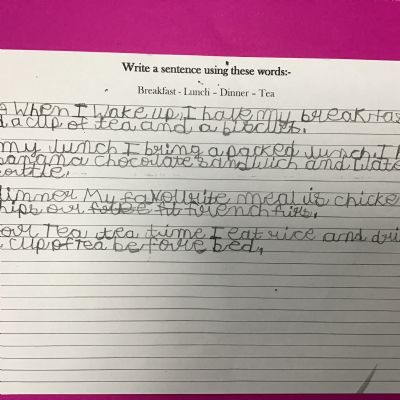 Write a sentence using these words:-
Breakfast - Lunch - Dinner - Tea
When I wake up, I have my breakfas
a cup of tea and a biscuts.
my lunch I bring a packed lunch. I h
banana chocolate sandwich and wate
bottle.
dinner My favourite meal is chicke
hips our fit french firs.
for Tea tea time I eat rice and dri
cup of tea before bed,